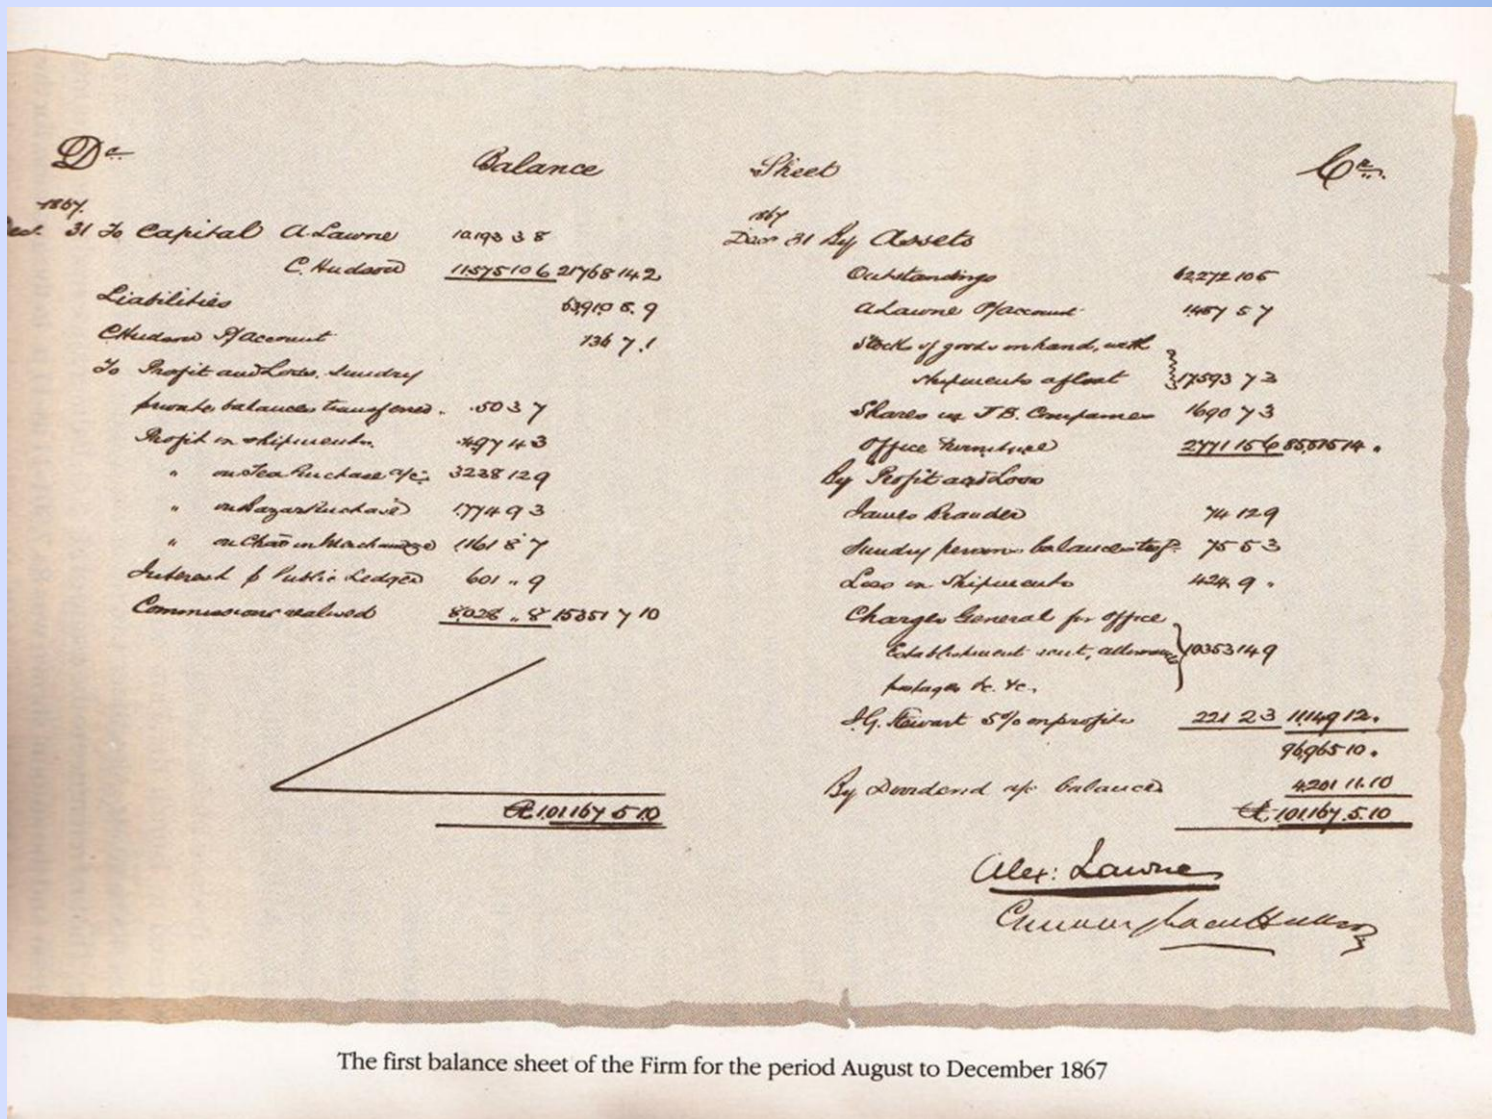 Dr. Balance Sheet Cr.
1867.
31 To Capital A. Lawrie 10193 3 8
C. Hudson 11575 10 6 21768 14 2
Liabilities 63910 8. 9
C Hudson P/account 136 7. 1
To Profit and Loss. Sundry
private balances transferred. 50 3 7
Profit in shipments. 497 4 3
" on Tea Purchase a/c: 3238 12 9
" on Bazar Purchased 1774 9 3
" on 1161 8 7
Interest p Public Ledger 601 " 9
Commissions realised 8028 " 8 15351 7 10
R 101167 5 10
1867
Decr 31 By Assets
Outstandings 62272 10 5
A Lawrie P/account 1487 5 7
Stock of goods on hand, with
shipments afloat 17593 7 3
Shares in J B. Companies 1690 7 3
Office Furniture 2771 15 6 85815 14 .
By Profit and Loss
James 74 12 9
Sundry person: balances 75 5 3
Loss in Shipments 424 9 .
Charges General for office
Establishment rent, 10353 14 9
postages &c. &c.
J.G. Stewart 5% on profits 221 2 3 11149 12 .
96965 10 .
By Dividend a/c balance 4201 11. 10
R 101167. 5. 10
Alex: Lawrie
The first balance sheet of the Firm for the period August to December 1867